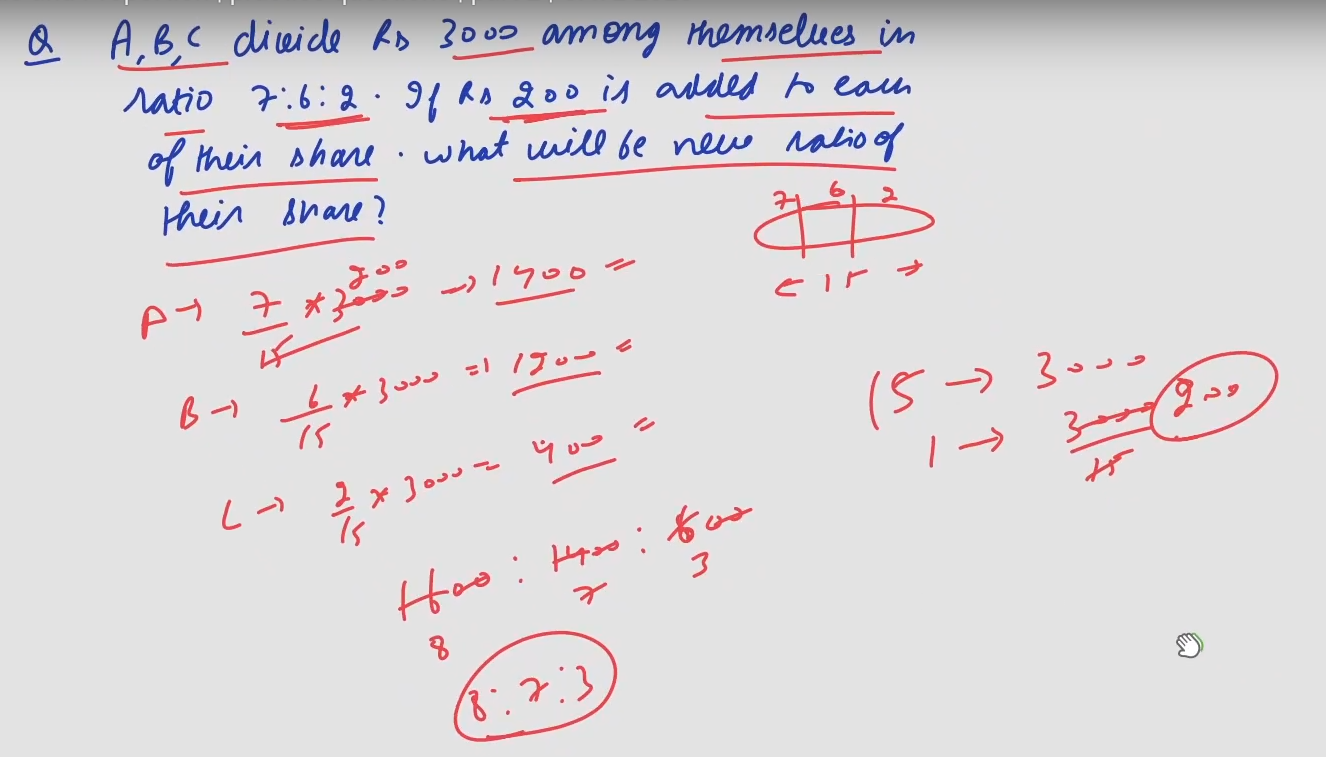 Q A, B, C divide Rs 3000 among themselves in
ratio 7:6:2. If Rs 200 is added to each
of their share. what will be new ratio of
their share?
7 6 2
← 15 →
A → 7/15 * 3000 200 → 1400 =
B → 6/15 * 3000 = 1200 =
C → 2/15 * 3000 = 400 =
15 → 3000
1 → 3000/15 200
1600 : 1400 : 600
8 7 3
8:7:3